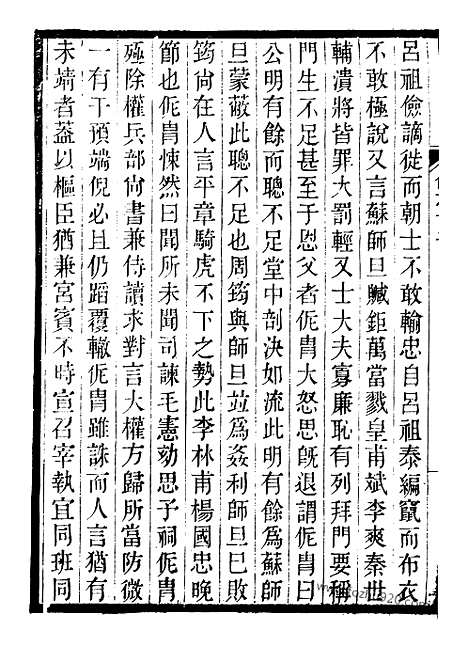 呂祖儉謫徙而朝士不敢輸忠自呂祖泰編竄而布衣
不敢極說又言蘇師旦贓鉅萬當戮皇甫斌李爽秦世
輔潰將皆罪大罰輕又士大夫寡廉恥有列拜門要稱
門生不足甚至于恩父者侂胄大怒思旣退謂侂胄曰
公明有餘而聰不足堂中剖決如流此明有餘爲蘇師
旦蒙蔽此聰不足也周筠與師旦竝爲姦利師旦已敗
筠尙在人言平章騎虎不下之勢此李林甫楊國忠晚
節也侂胄悚然曰聞所未聞司諫毛憲劾思予祠侂胄
殛除權兵部尙書兼侍讀求對言大權方歸所當防微
一有干預端倪必且仍蹈覆轍侂胄雖誅而人言猶有
未靖者葢以樞臣猶兼宮賓不時宣召宰執宜同班同